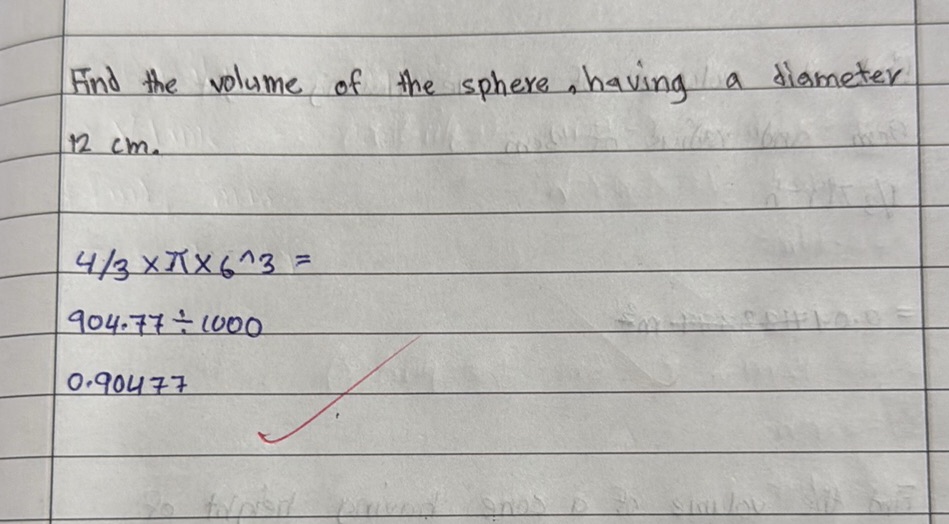 Find the volume of the sphere, having a diameter
12 cm.
4/3 × π × 6^3 =
904.77 ÷ 1000
0.90477